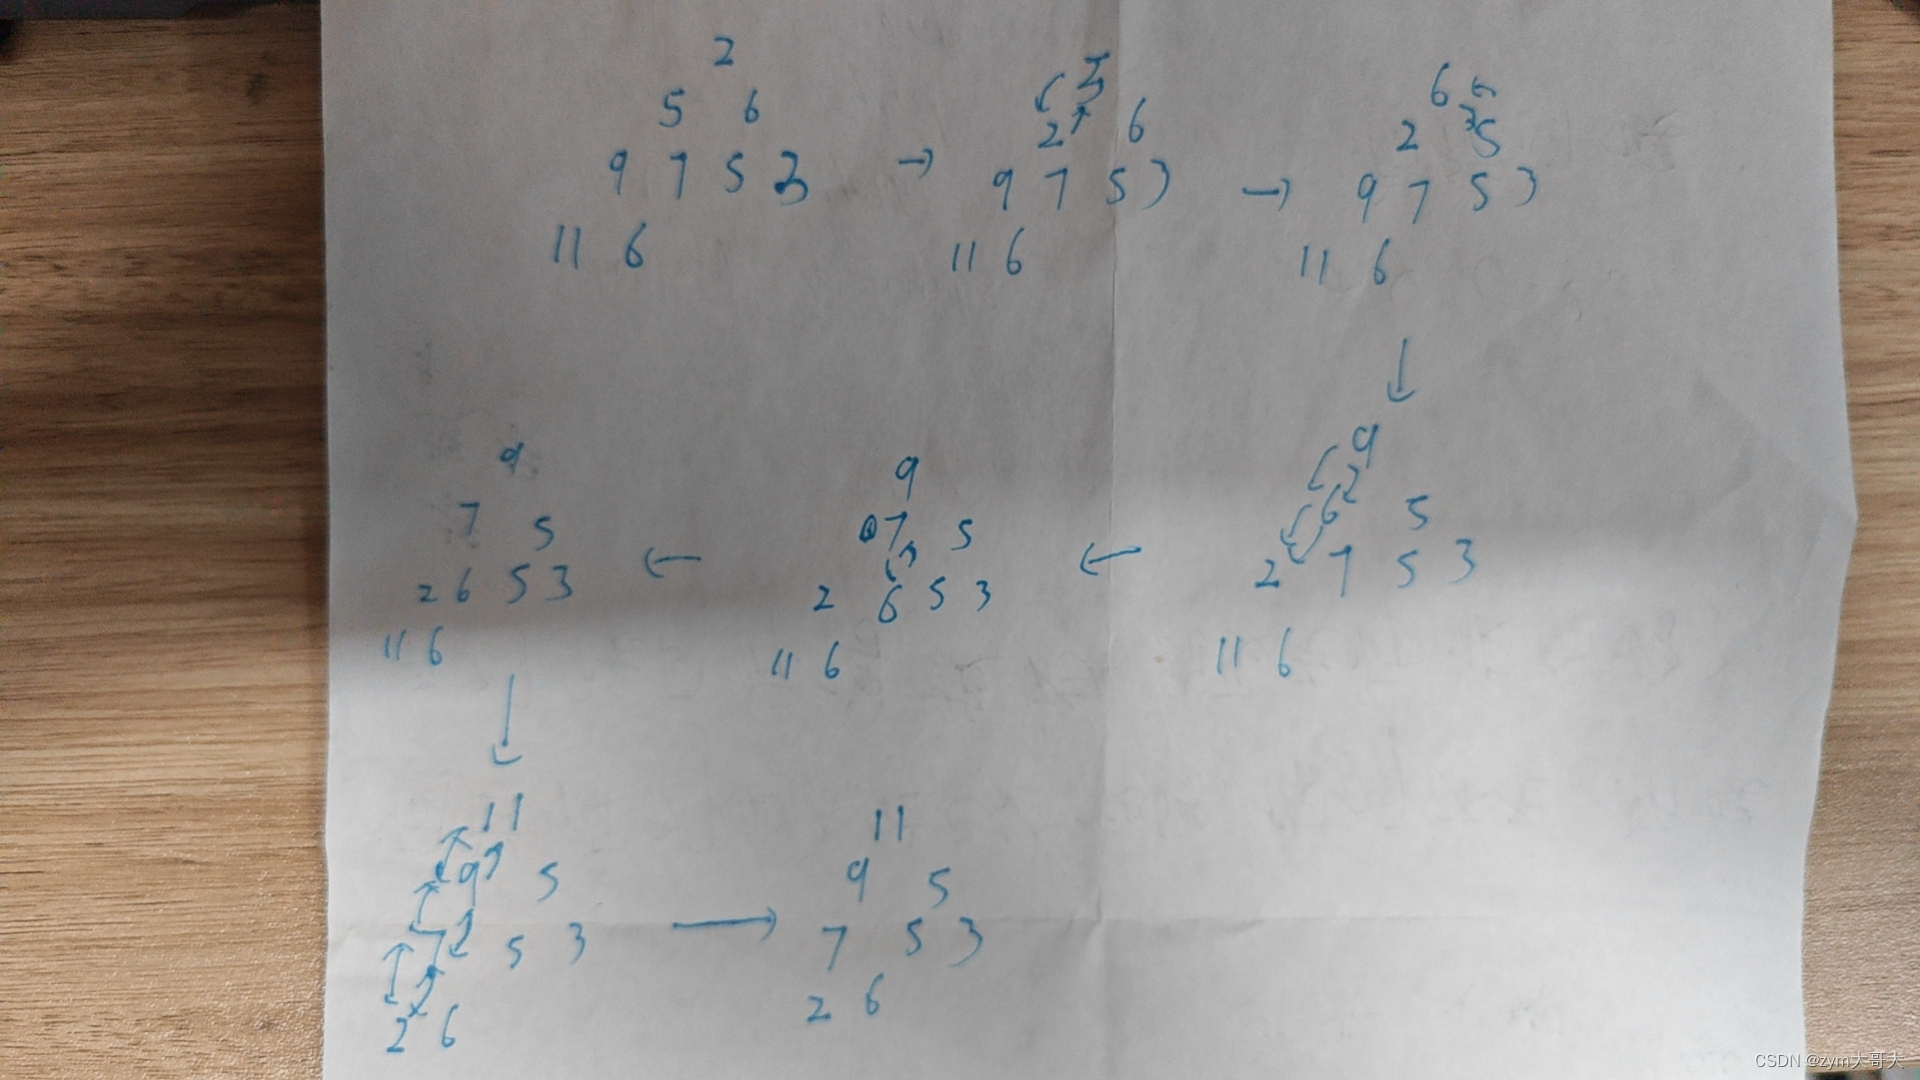 2
5 6
9 7 5 3
11 6
→
5
2 6
9 7 5 3
11 6
→
6
2 5
9 7 5 3
11 6
↓
9
6
5
2 7 5 3
11 6
←
9
7 5
2 6 5 3
11 6
←
9
7 5
2 6 5 3
11 6
↓
11
9 5
7 5 3
2 6
→
11
9 5
7 5 3
2 6
CSDN @zym大哥大